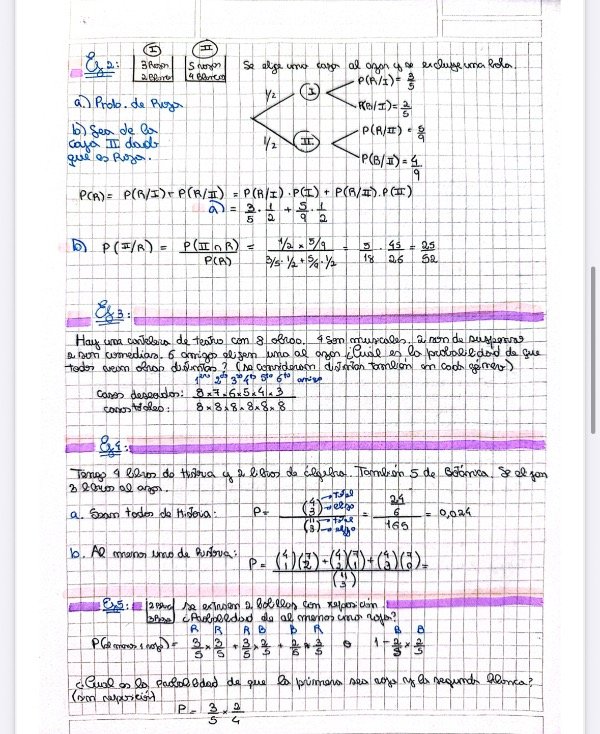 Ej 2:
I
II
3 Rojas
2 Blancas
5 rojas
4 Blancas
Se elige una caja al azar y se extrae una bola.
a) Prob. de Roja
b) Sea de la
caja II dado
que es Roja.
1/2
I
P(R/I) = 3/5
P(B/I) = 2/5
1/2
II
P(R/II) = 5/9
P(B/II) = 4/9
P(R) = P(R/I) + P(R/II) = P(R/I) . P(I) + P(R/II) . P(II)
a) = 3/5 . 1/2 + 5/9 . 1/2
b) P(II/R) = P(II ∩ R) / P(R) = 1/2 x 5/9 / 3/5 . 1/2 + 5/9 . 1/2 = 5/18 . 45/26 = 25/52
Ej 3:
Hay una cartelera de teatro con 8 obras. 4 son musicales, 2 son de suspenso
2 son comedias. 6 amigos eligen una al azar ¿Cuál es la probabilidad de que
todos vean obras distintas? (se consideran distintas también en cada género)
1ro 2do 3ro 4to 5to 6to amigo
Casos deseados: 8 x 7 . 6 x 5 x 4 . 3
casos totales: 8 x 8 x 8 x 8 x 8 x 8
Ej 4:
Tengo 4 libros de Historia y 2 libros de álgebra. También 5 de Botánica. Se eligen
3 libros al azar.
a. Sean todos de Historia: P = (4 3) → total → elijo / (11 3) → total → elijo = 24/6 / 165 = 0,024
b. Al menos uno de historia: P = (4 1)(7 2) + (4 2)(7 1) + (4 3)(7 0) / (11 3) =
Ej 5:
2 Blan
3 Rojas
se extraen 2 bolillas con reposición.
¿Probabilidad de al menos una roja?
R R R B B R B B
P(al menos 1 roja) = 3/5 x 3/5 + 3/5 x 2/5 + 2/5 x 3/5 o 1 - 2/5 x 2/5
¿Cuál es la probabilidad de que la primera sea roja y la segunda blanca?
(sin reposición)
P = 3/5 x 2/4